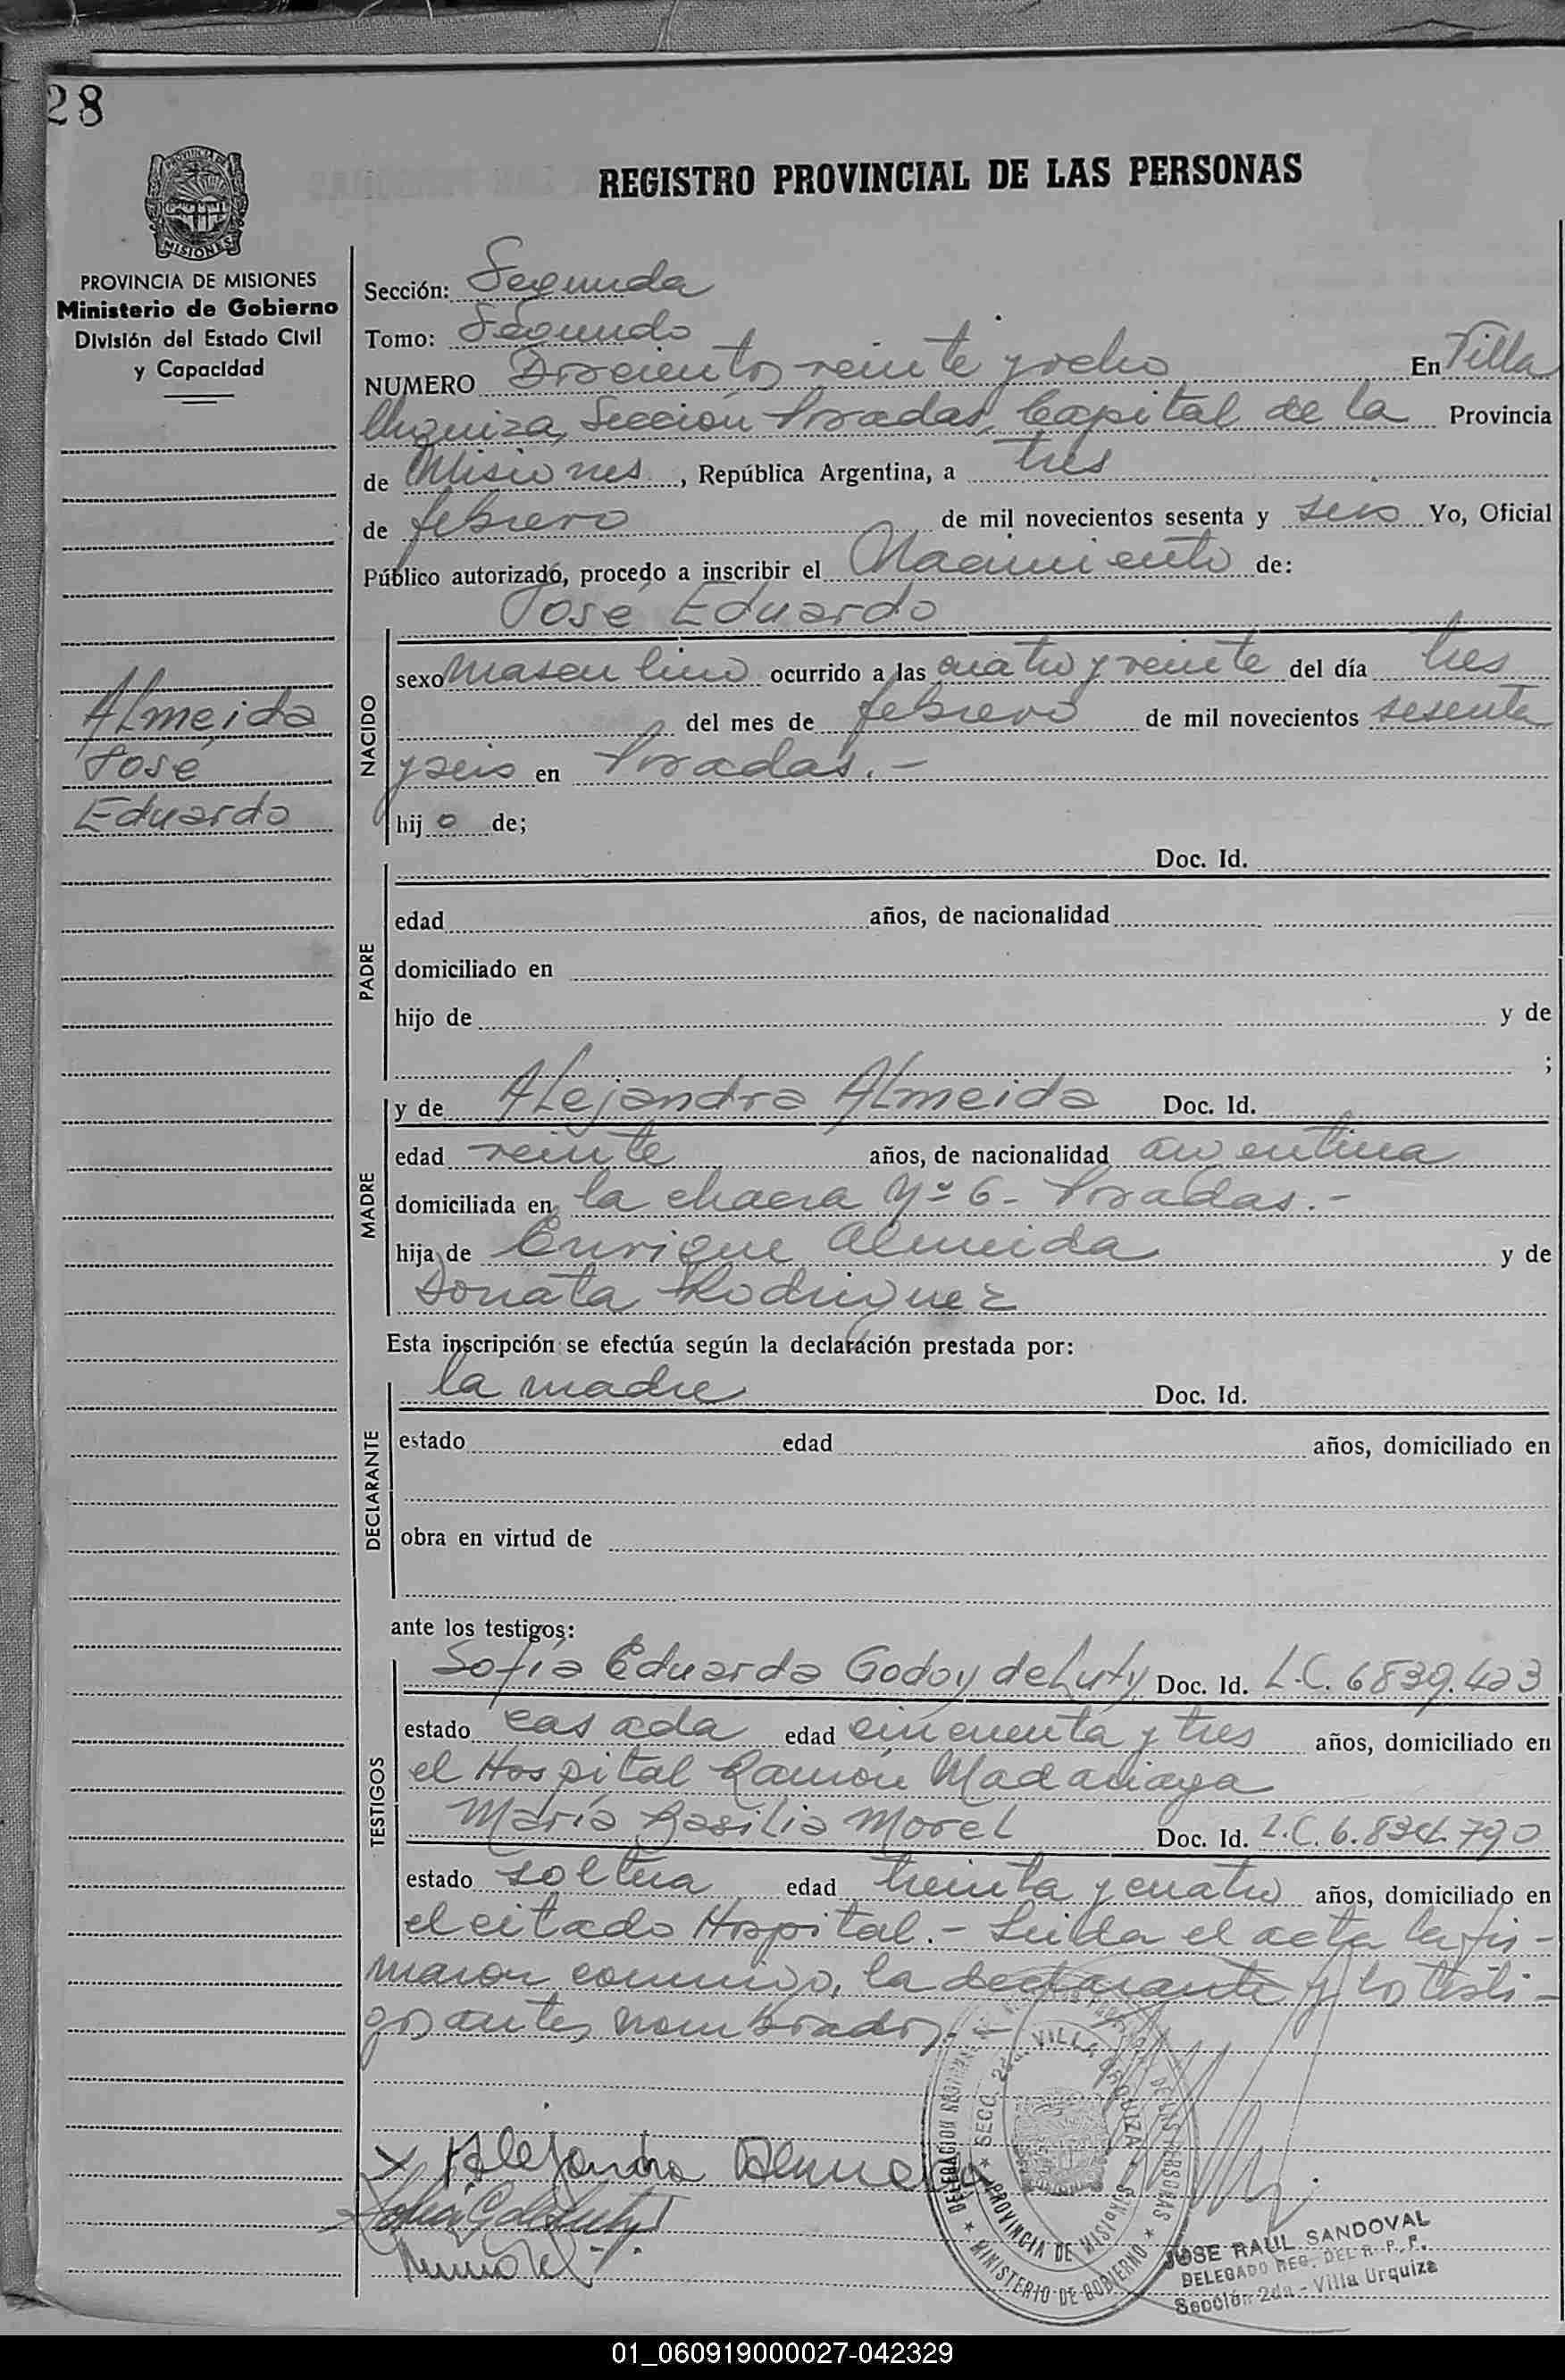 28
REGISTRO PROVINCIAL DE LAS PERSONAS
PROVINCIA DE MISIONES
Ministerio de Gobierno
División del Estado Civil
y Capacidad
Almeida
José
Eduardo
Sección: Segunda
Tomo: Segundo
NUMERO Doscientos veinte y ocho En Villa
Urquiza, Sección Posadas, Capital de la Provincia
de Misiones, República Argentina, a tres
de febrero de mil novecientos sesenta y seis Yo, Oficial
Público autorizado, procedo a inscribir el Nacimiento de:
José Eduardo
NACIDO
sexo Masculino ocurrido a las cuatro y veinte del día tres
del mes de febrero de mil novecientos sesenta
y seis en Posadas.-
hijo de;
PADRE
Doc. Id.
edad años, de nacionalidad
domiciliado en
hijo de y de
;
MADRE
y de Alejandra Almeida Doc. Id.
edad veinte años, de nacionalidad argentina
domiciliada en la chacra Nº 6 - Posadas.-
hija de Enrique Almeida y de
Donata Rodriguez
Esta inscripción se efectúa según la declaración prestada por:
DECLARANTE
la madre Doc. Id.
estado edad años, domiciliado en
obra en virtud de
ante los testigos:
TESTIGOS
Sofía Eduarda Godoy de Luty Doc. Id. L.C. 6839.423
estado casada edad cincuenta y tres años, domiciliado en
el Hospital Ramón Madariaga
María Basilia Morel Doc. Id. L.C. 6.834.790
estado soltera edad treinta y cuatro años, domiciliado en
el citado Hospital.- Leída el acta la fir-
maron conmigo, la declarante y los testi-
gos antes nombrados.-
Alejandra Almeida
SECC. 2da. VILLA URQUIZA
PROVINCIA DE MISIONES
MINISTERIO DE GOBIERNO
JOSE RAUL SANDOVAL
DELEGADO REG. DEL R. P. P.
Sección 2da - Villa Urquiza
01_060919000027-042329